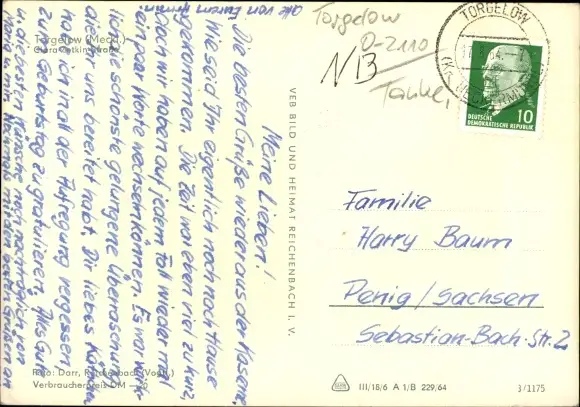 Torgelow (Meckl.)
Clara-Zetkin-Straße
Meine Lieben!
Die besten Grüße wieder aus der Kaserne.
Wie seid Ihr eigentlich noch nach Hause
gekommen. Die Zeit war eben viel zu kurz
aber wir haben auf jedem Fall wieder mal
ein paar Worte wechseln können. Es war mir
die schönste gelungene Überraschung
die Ihr uns bereitet habt. Dir liebes
habe ich in all der Aufregung vergessen
zum Geburtstag zu gratulieren. Alles Gute
die besten Wünsche noch nachträglich von
Maria u. mir. Nochmals mit den besten Grüßen an
alle von Eurem
Foto: Darr, Reichenbach (Vogtl.)
Verbraucherpreis DM —,20
VEB BILD UND HEIMAT REICHENBACH I. V.
Torgelow
O-2110
N13
TORGELOW
DEUTSCHE
DEMOKRATISCHE REPUBLIK
10
Familie
Harry Baum
Penig/Sachsen
Sebastian-Bach-Str. 2
III/18/6 A 1/B 229/64
3/1175